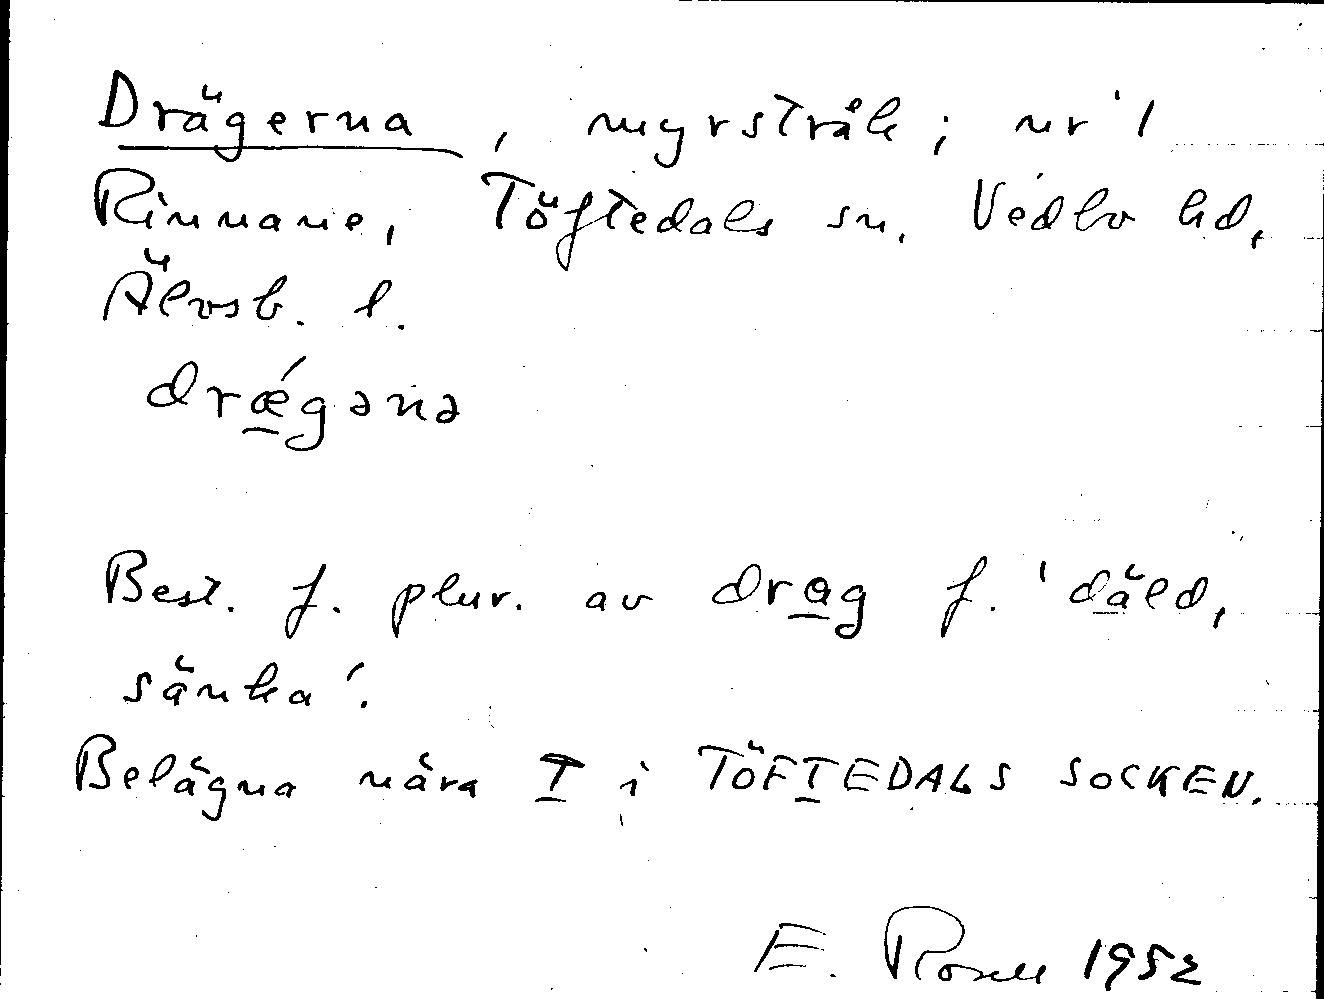 Drägerna, myrstråk; nr 1
Rinnane, Töftedals sn. Vedbo hd,
Älvsb. l.
drǽgənə
Best. f. plur. av drag f. 'dåld,
sänka'.
Belägna nära T i TÖFTEDALS SOCKEN.
E. Rosell 1952